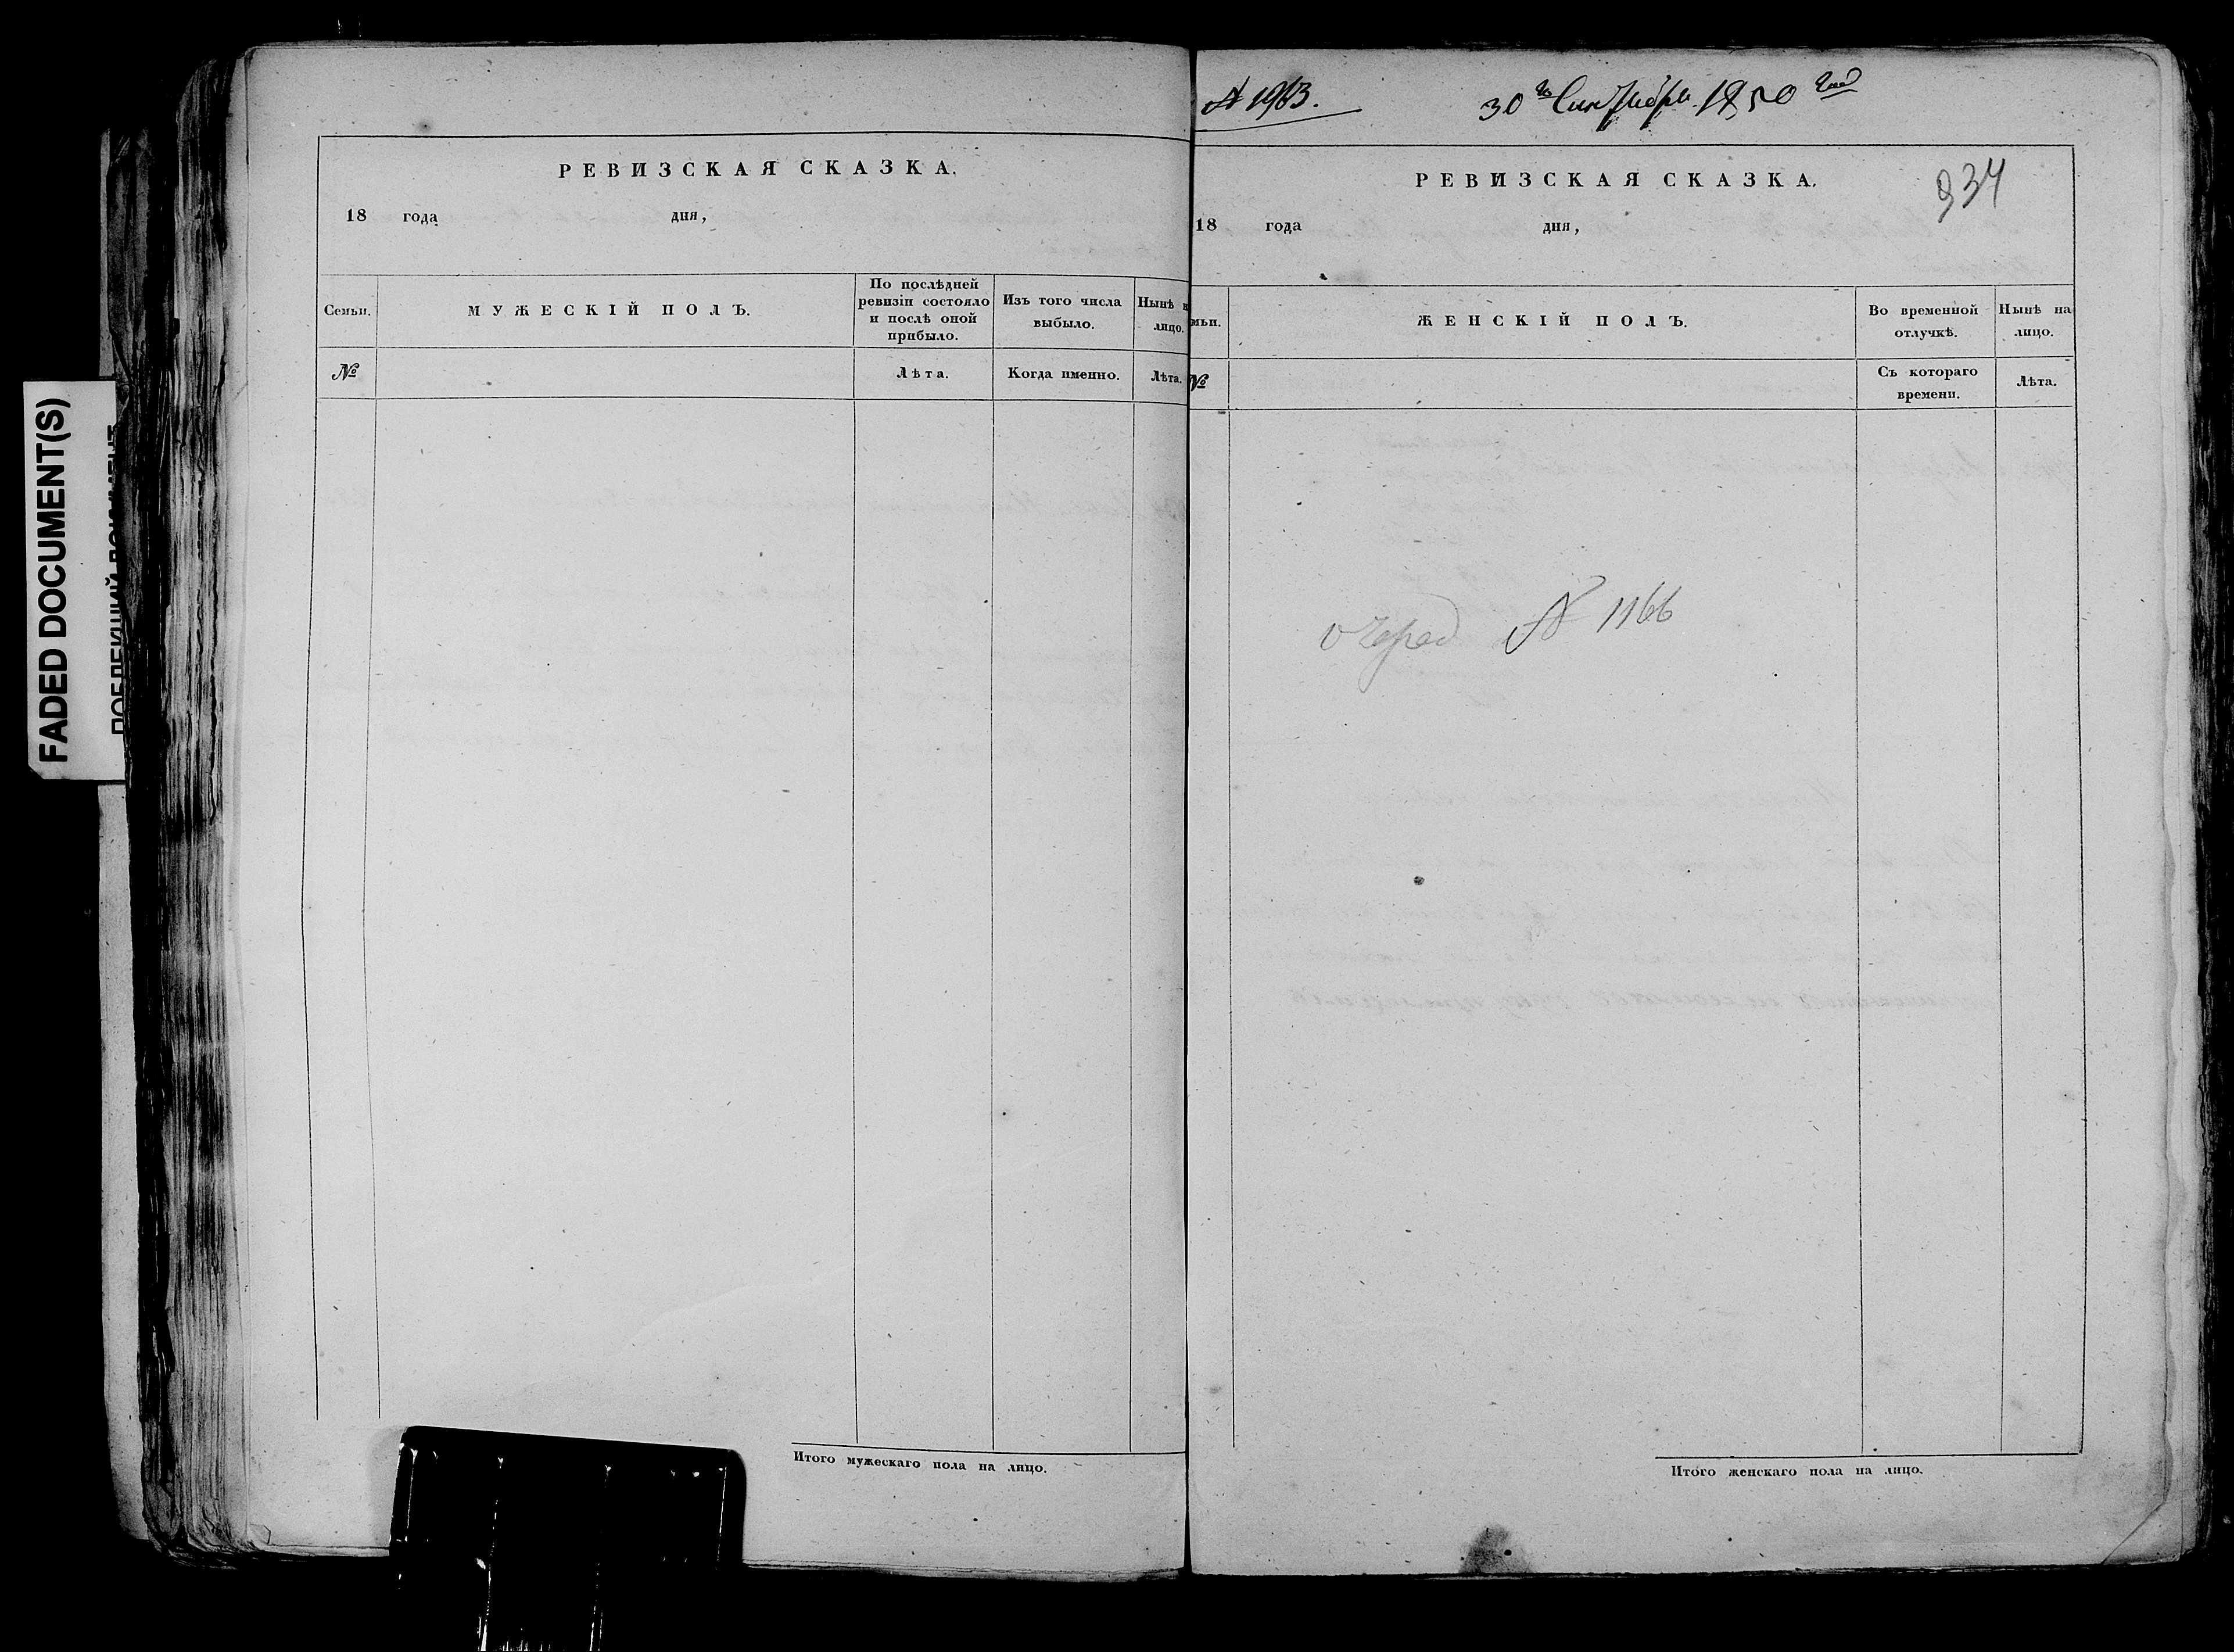 FADED DOCUMENT(S)
РЕВИЗСКАЯ СКАЗКА.
18 года дня,
Семьи.
МУЖЕСКІЙ ПОЛЪ.
По послѣдней
ревизіи состояло
и послѣ оной
прибыло.
Изъ того числа
выбыло.
Нынѣ н
лицо.
№
Лѣта.
Когда именно.
Лѣта.
Итого мужескаго пола на лицо.
№ 1963.
30го Сентября 1850 года
РЕВИЗСКАЯ СКАЗКА.
934
18 года дня,
мьи.
ЖЕНСКІЙ ПОЛЪ.
Во временной
отлучкѣ.
Нынѣ на
лицо.
№
Съ котораго
времени.
Лѣта.
очеред № 1166
Итого женскаго пола на лицо.